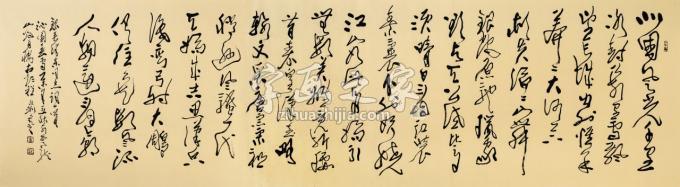 北国风光千里
冰封万里雪飘
望长城内外惟余
莽莽大河上下
顿失滔滔山舞
银蛇原驰蜡象
欲与天公试比高
须晴日看红装
素裹分外妖娆
江山如此多娇引
无数英雄竞折腰
惜秦皇汉武略
输文采唐宗宋祖
稍逊风骚一代
天骄成吉思汗只
识弯弓射大雕
俱往矣数风流
人物还看今朝
字画之家